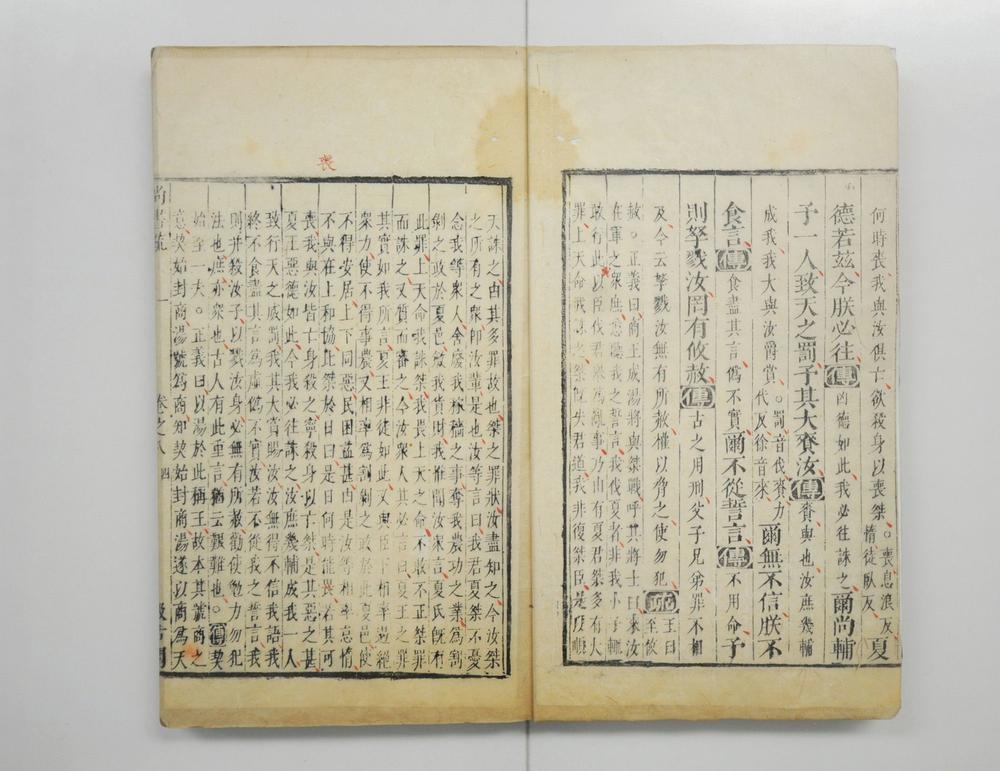 何時喪我與汝俱亡欲殺身以喪桀。喪息浪反惰徒臥反夏
德若茲今朕必往傳凶德如此我必往誅之爾尚輔
予一人致天之罰予其大賚汝傳賚與也汝庶幾輔
成我我大與汝爵賞。罰音伐賚力代反徐音來爾無不信朕不
食言傳食盡其言僞不實爾不從誓言傳不用命予
則孥戮汝罔有攸赦傳古之用刑父子兄弟罪不相
及今云孥戮汝無有所赦權以脅之使勿犯疏王曰至攸
赦。正義曰商王成湯將與桀戰呼其將士曰來汝
在軍之衆庶悉聽我之誓言我伐夏者非我小子輒
敢行此以臣伐君舉爲亂事乃由有夏君桀多有大
罪上天命我誅之桀既失君道我非復桀臣是以順
喪
天誅之由其多罪故也桀之罪狀汝盡知之今汝桀
之所有之衆即汝輩是也汝等言曰我君夏桀不憂
念我等衆人舍廢我稼穡之事奪我農功之業爲割
剝之政於夏邑斂我貨財我惟聞汝衆言夏氏既有
此罪上天命我誅桀我畏上天之命不敢不正桀罪
而誅之又質而審之今汝衆人其必言曰夏王之罪
其實如我所言夏王非徒如此又與臣下相率遏絕
衆力使不得事農又相率爲割剝之政於此夏邑使
不得安居上下同惡民困益甚由是汝等相率怠惰
不與在上和協比桀於日曰是日何時能喪若其可
喪我與汝皆亡身殺之寧殺身以亡桀是其惡之甚
夏王惡德如此今我必往誅之汝庶幾輔成我一人
致行天之威罰我其大賞賜汝汝無得不信我語我
終不食盡其言爲虛僞不實汝若不從我之誓言我
則并殺汝子以戮汝身必無有所赦勸使勉力勿犯
法也庶亦衆也古人有此重言猶云艱難也。傳契
始至一夫。正義曰以湯於此稱王故本其號商之
意契始封商湯號爲商知契始封商湯遂以商爲天
尚書疏 卷之八 四 汲古閣